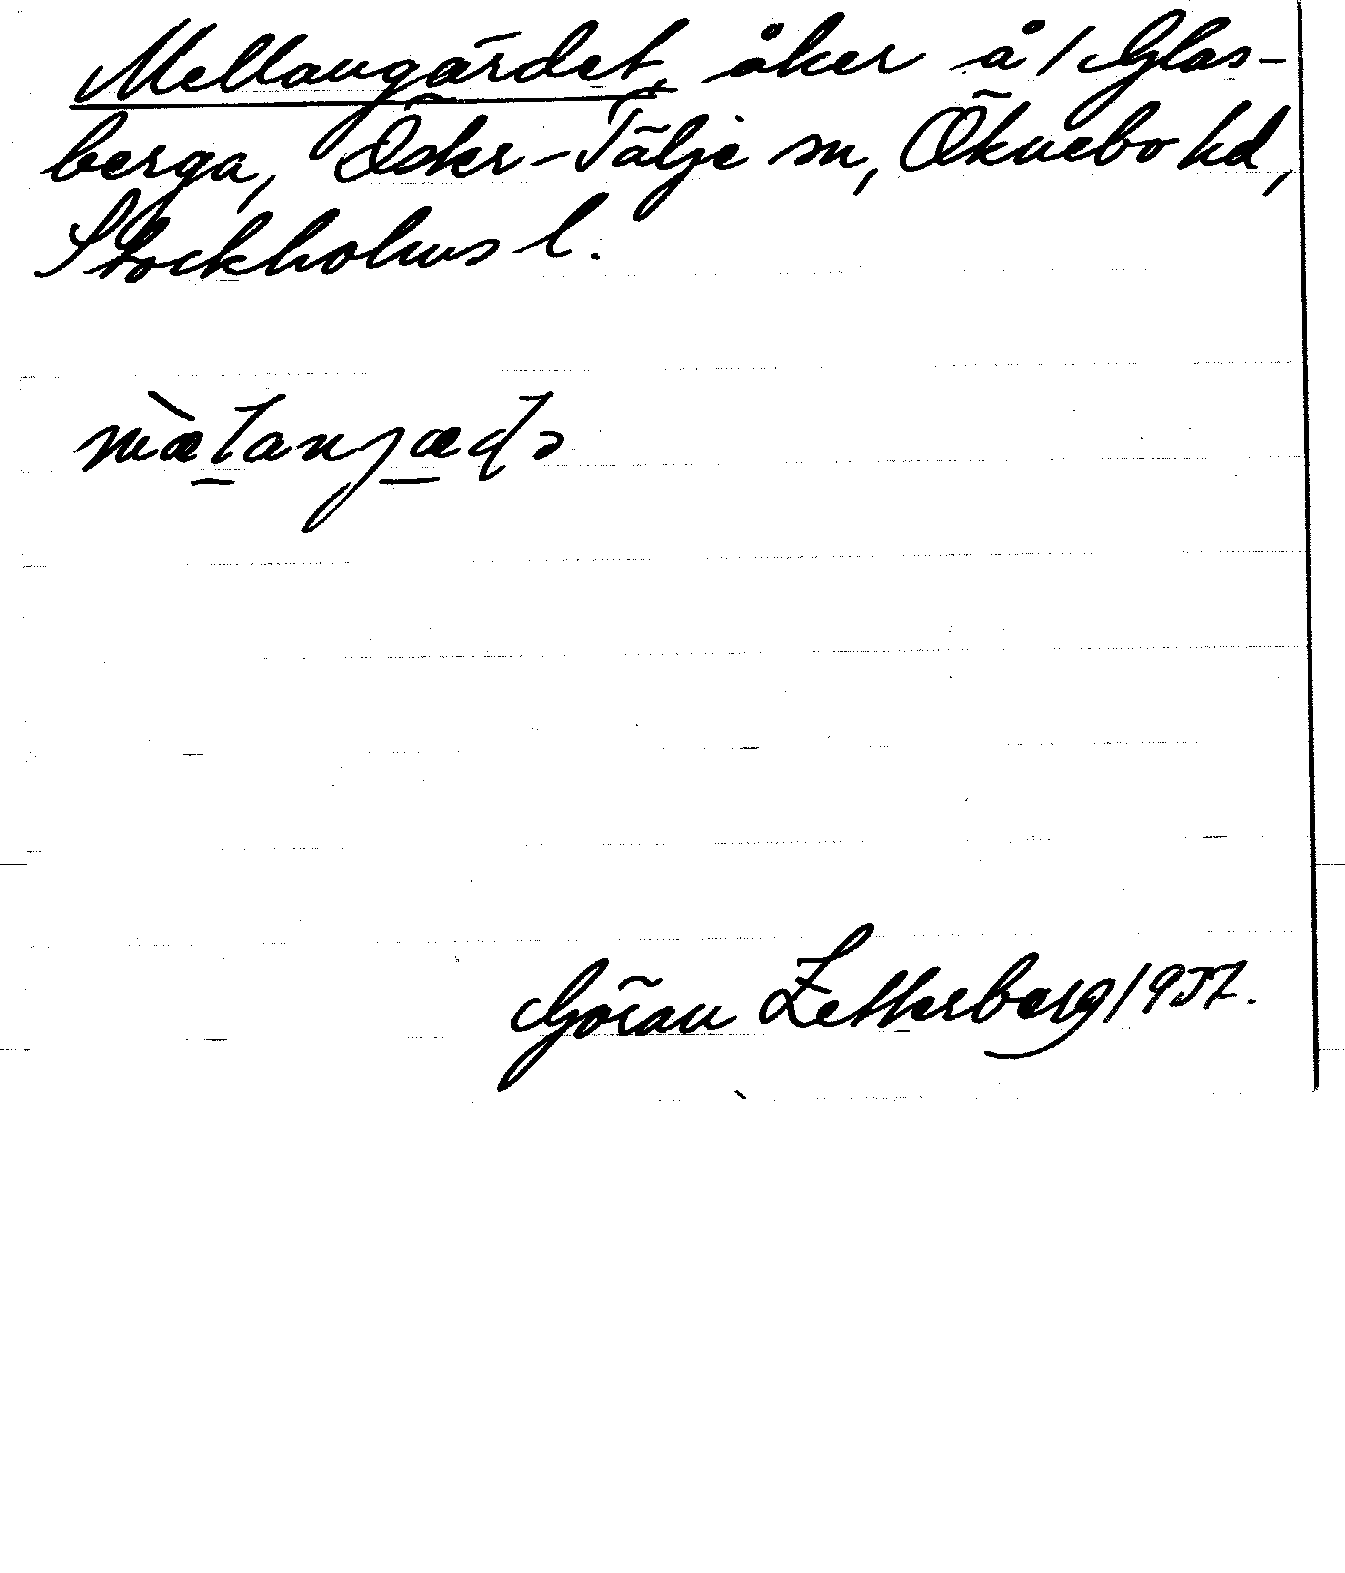 Mellangärdet, åker å 1 Glas-
berga, Öster-Tälje sn, Öknebo hd,
Stockholms l.
mæ̀lanjæḍə
Göran Zetterberg 1937.